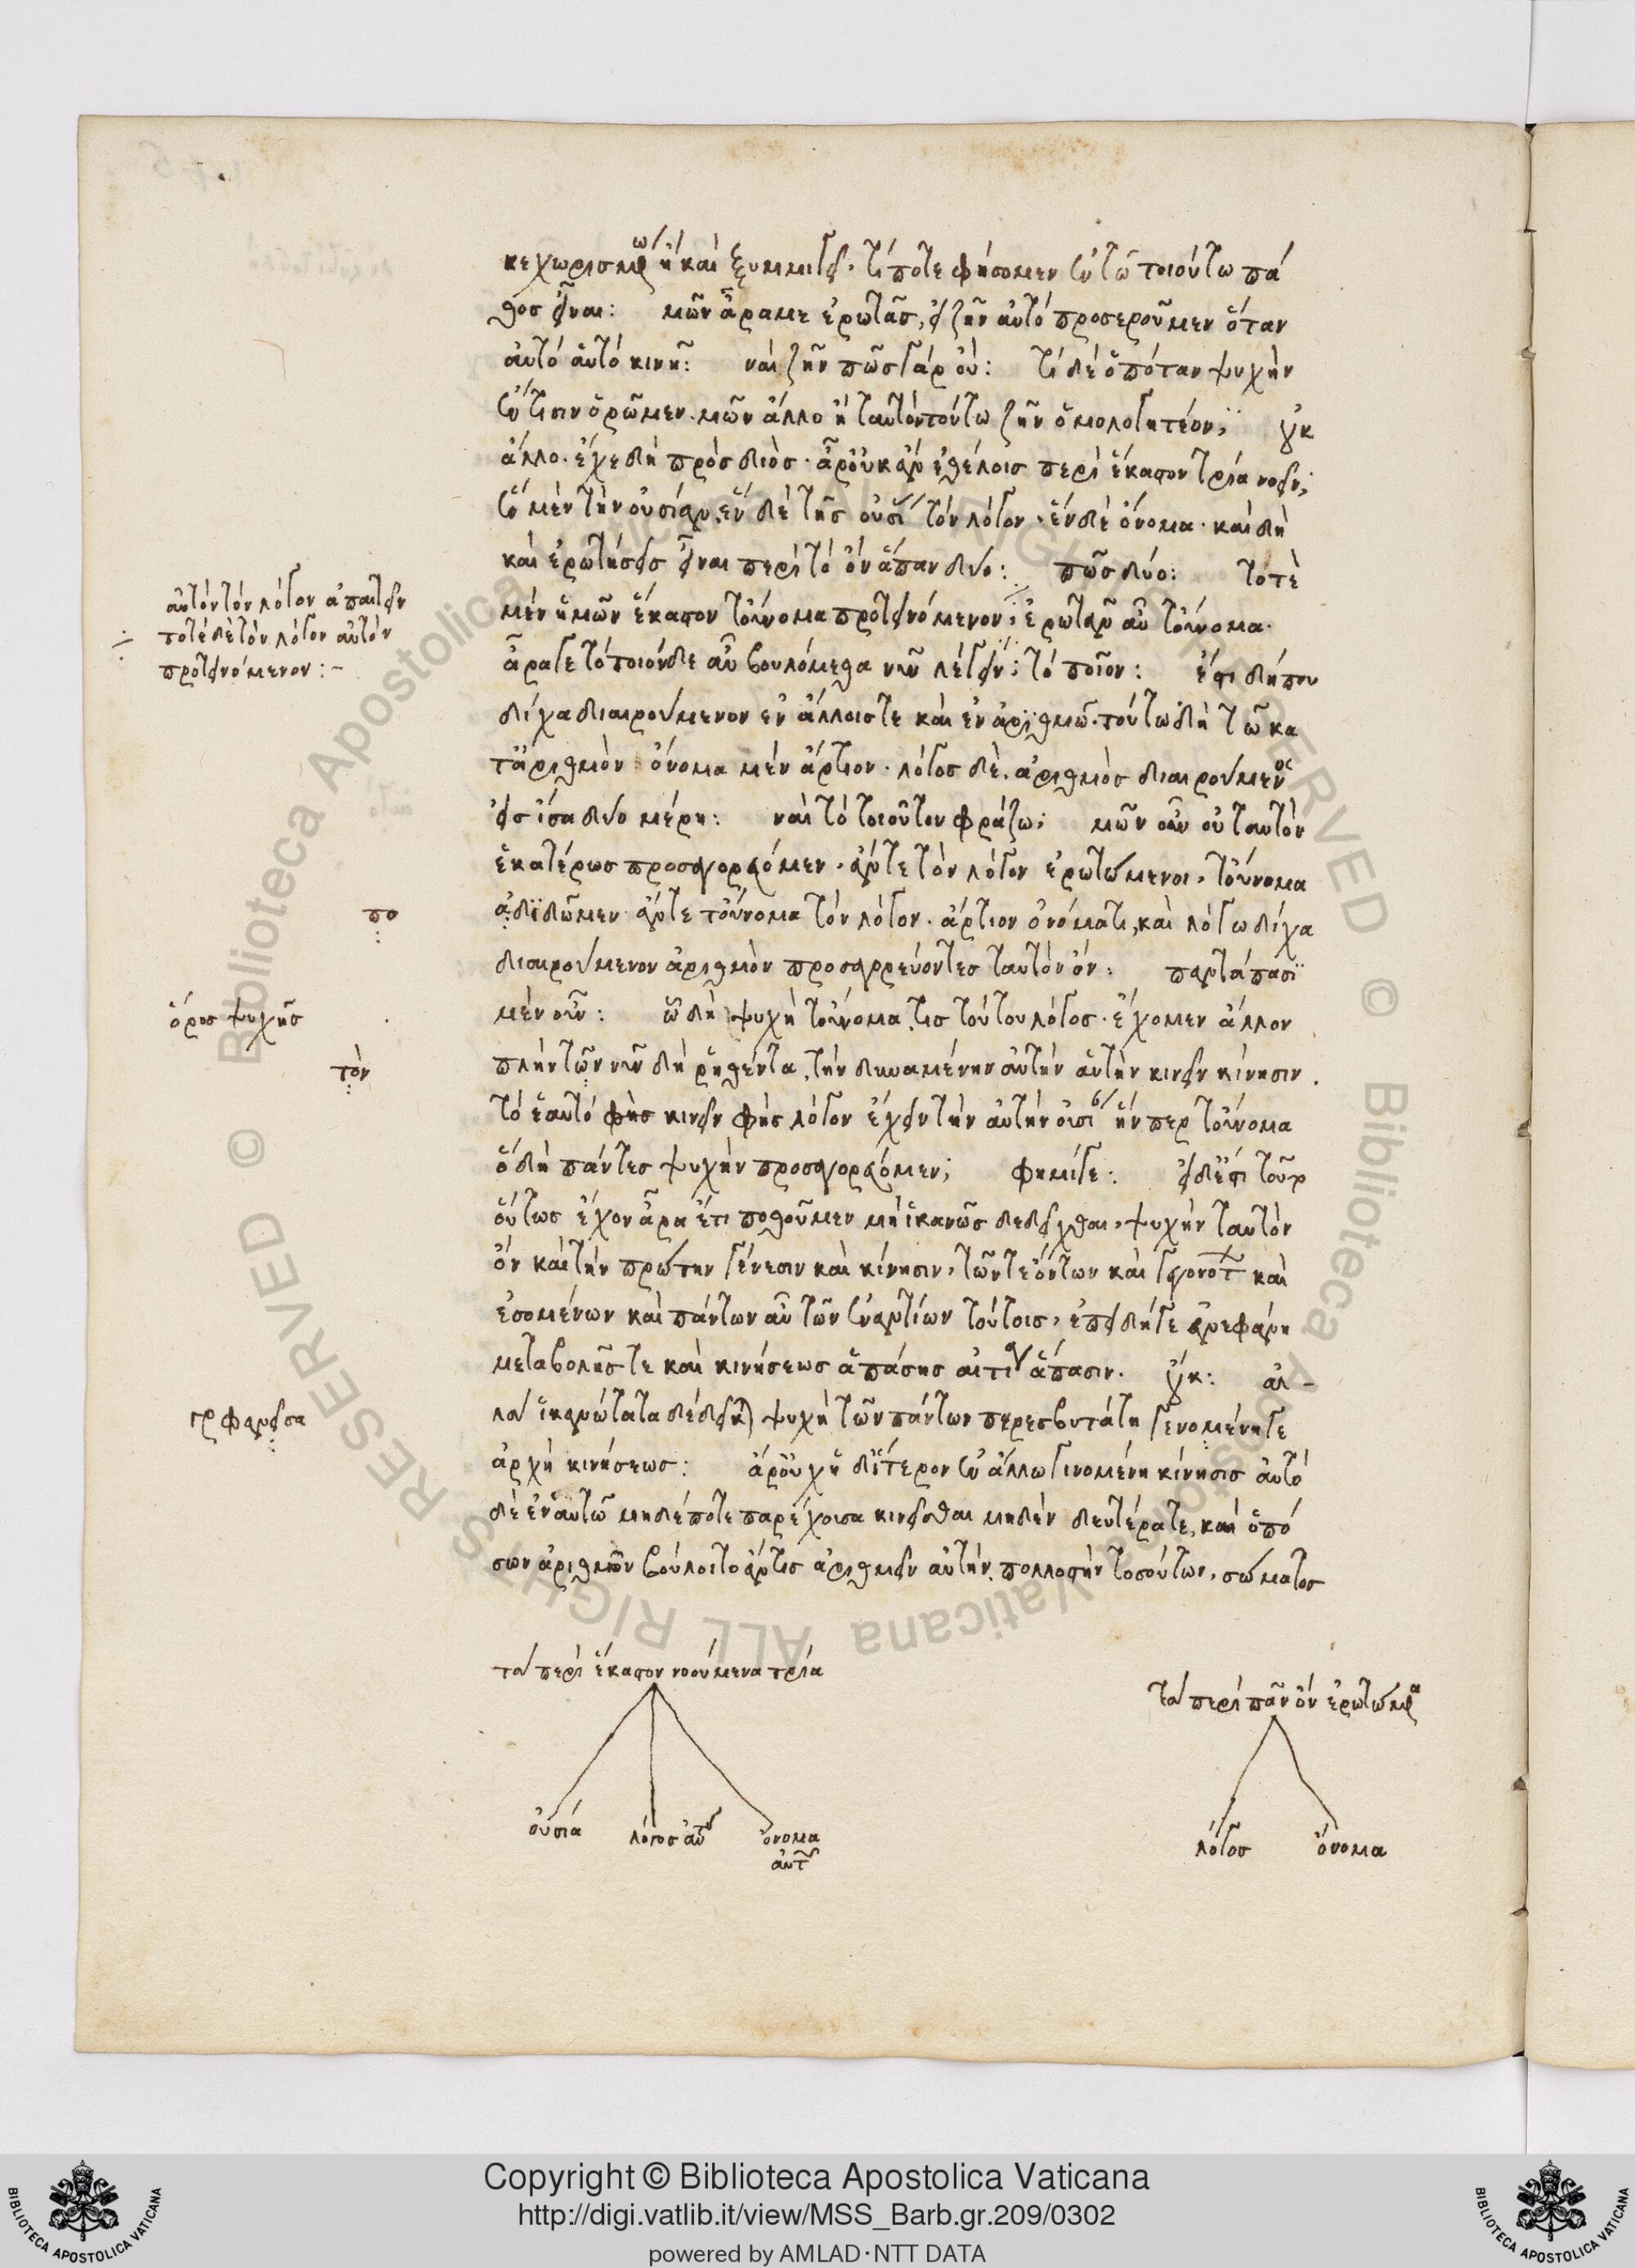 κεχωρισμένω ἢ καὶ ξυμμιγεῖ. τί ποτε φήσομεν ἐν τῶ τοιούτω πά
θος εἶναι: μῶν ἆρα με ἐρωτᾶς, εἰ ζῆν αὐτὸ προσεροῦμεν ὅταν
αὐτὸ αὑτὸ κινῆ: ναί ζῆν πῶς γὰρ οὔ: τί δέ ὁπόταν ψυχὴν
ἔν τισιν ὁρῶμεν. μῶν ἄλλο ἢ ταυτὸν τούτω ζῆν ὁμολογητέον; οὐκ
ἄλλο. ἔχε δὴ πρὸς διός. ἆρ' οὐκ ἂν ἐθέλοις περὶ ἕκαστον τρία νοεῖν;
ἓν μὲν τὴν οὐσίαν, ἓν δὲ τῆς οὐσίας τὸν λόγον. ἓν δὲ ὄνομα. καὶ δὴ
καὶ ἐρωτήσεις εἶναι περὶ τὸ ὂν ἅπαν δύο: πῶς δύο: τοτὲ
μὲν ἡμῶν ἕκαστον τοὔνομα προτεινόμενον ἐρωτᾶν αὖ τοὔνομα.
ἆρά γε τὸ ποιόνδε αὖ βουλόμεθα νῦν λέγειν; τὸ ποῖον: ἔστι δή που
δίχα διαιρούμενον ἐν ἄλλοις τε καὶ ἐν ἀριθμῶ. τούτω δὴ τῶ κα
τ' ἀριθμὸν ὄνομα μὲν ἄρτιον. λόγος δὲ, ἀριθμὸς διαιρούμενος
εἰς ἴσα δύο μέρη: ναί τὸ τοιοῦτον φράζω; μῶν οὖν οὐ ταυτὸν
ἑκατέρως προσαγορεύομεν. ἄν τε τὸν λόγον ἐρωτώμενοι, τοὔνομα
ἀδιδῶμεν ἄν τε τοὔνομα τὸν λόγον. ἄρτιον ὀνόματι, καὶ λόγω δίχα
διαιρούμενον ἀριθμὸν προσαγορεύοντες ταυτὸν ὄν: παντάπασι
μὲν οὖν: ὧ δὴ ψυχὴ τοὔνομα τίς τούτου λόγος. ἔχομεν ἄλλον
πλὴν τῶν νῦν δὴ ῥηθέντα, τὴν δυναμένην αὐτὴν αὑτὴν κινεῖν κίνησιν.
τὸ ἑαυτὸ φὴς κινεῖν φὴς λόγον ἔχειν τὴν αὐτὴν οὐσίαν ἥνπερ τοὔνομα
ὃ δὴ πάντες ψυχὴν προσαγορεύομεν; φημί γε: εἰ δ' ἔστι τοῦτο
οὕτως ἔχον ἆρα ἔτι ποθοῦμεν μὴ ἱκανῶς δεδεῖχθαι, ψυχὴν ταυτὸν
ὂν καὶ τὴν πρώτην γένεσιν καὶ κίνησιν, τῶν τε ὄντων καὶ γεγονότων καὶ
ἐσομένων καὶ πάντων αὖ τῶν ἐναντίων τούτοις, ἐπειδή γε ἀνεφάνη
μεταβολῆς τε καὶ κινήσεως ἁπάσης αἰτία ἅπασιν. οὔκ: ἀλ-
λὰ ἱκανώτατα δέδεικται ψυχὴ τῶν πάντων πρεσβυτάτη γενομένη γε
ἀρχὴ κινήσεως: ἆρ' οὖν οὐχ ἡ δι' ἕτερον ἐν ἄλλω γινομένη κίνησις αὐτὸ
δὲ ἐν αὑτῶ μηδέποτε παρέχουσα κινεῖσθαι μηδὲν δευτέρα τε, καὶ ὁπό
σων ἀριθμῶν βούλοιτο ἄν τις ἀριθμεῖν αὐτὴν πολλοστὴν τοσούτων, σώματος
αὐτὸν τὸν λόγον ἀπαιτεῖν
τοτὲ δὲ τὸν λόγον αὐτὸν
προτεινόμενον:-
πο
ὅρος ψυχῆς
τὸν
γρ φανεῖσα
τὰ περὶ ἕκαστον νοούμενα τρία
οὐσία λόγος αὐτῆς ὄνομα
αὐτῆς
τὰ περὶ πᾶν ὂν ἐρωτώμενα
λόγος ὄνομα
Copyright © Biblioteca Apostolica Vaticana
http://digi.vatlib.it/view/MSS_Barb.gr.209/0302
powered by AMLAD·NTT DATA
BIBLIOTECA APOSTOLICA VATICANA
BIBLIOTECA APOSTOLICA VATICANA
© Biblioteca Apostolica Vaticana ALL RIGHTS RESERVED
© Biblioteca Apostolica Vaticana ALL RIGHTS RESERVED